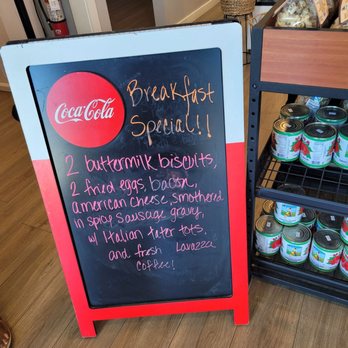 Coca-Cola
Breakfast
Special!!
2 buttermilk biscuits,
2 fried eggs, bacon,
american cheese, smothered
in spicy sausage gravy,
w/ Italian tater tots,
and fresh Lavazza
coffee!